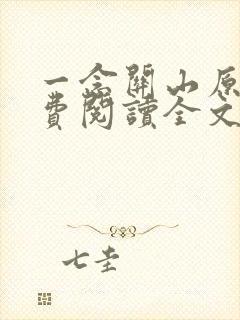 一念關山原
費閱讀全文
七圭